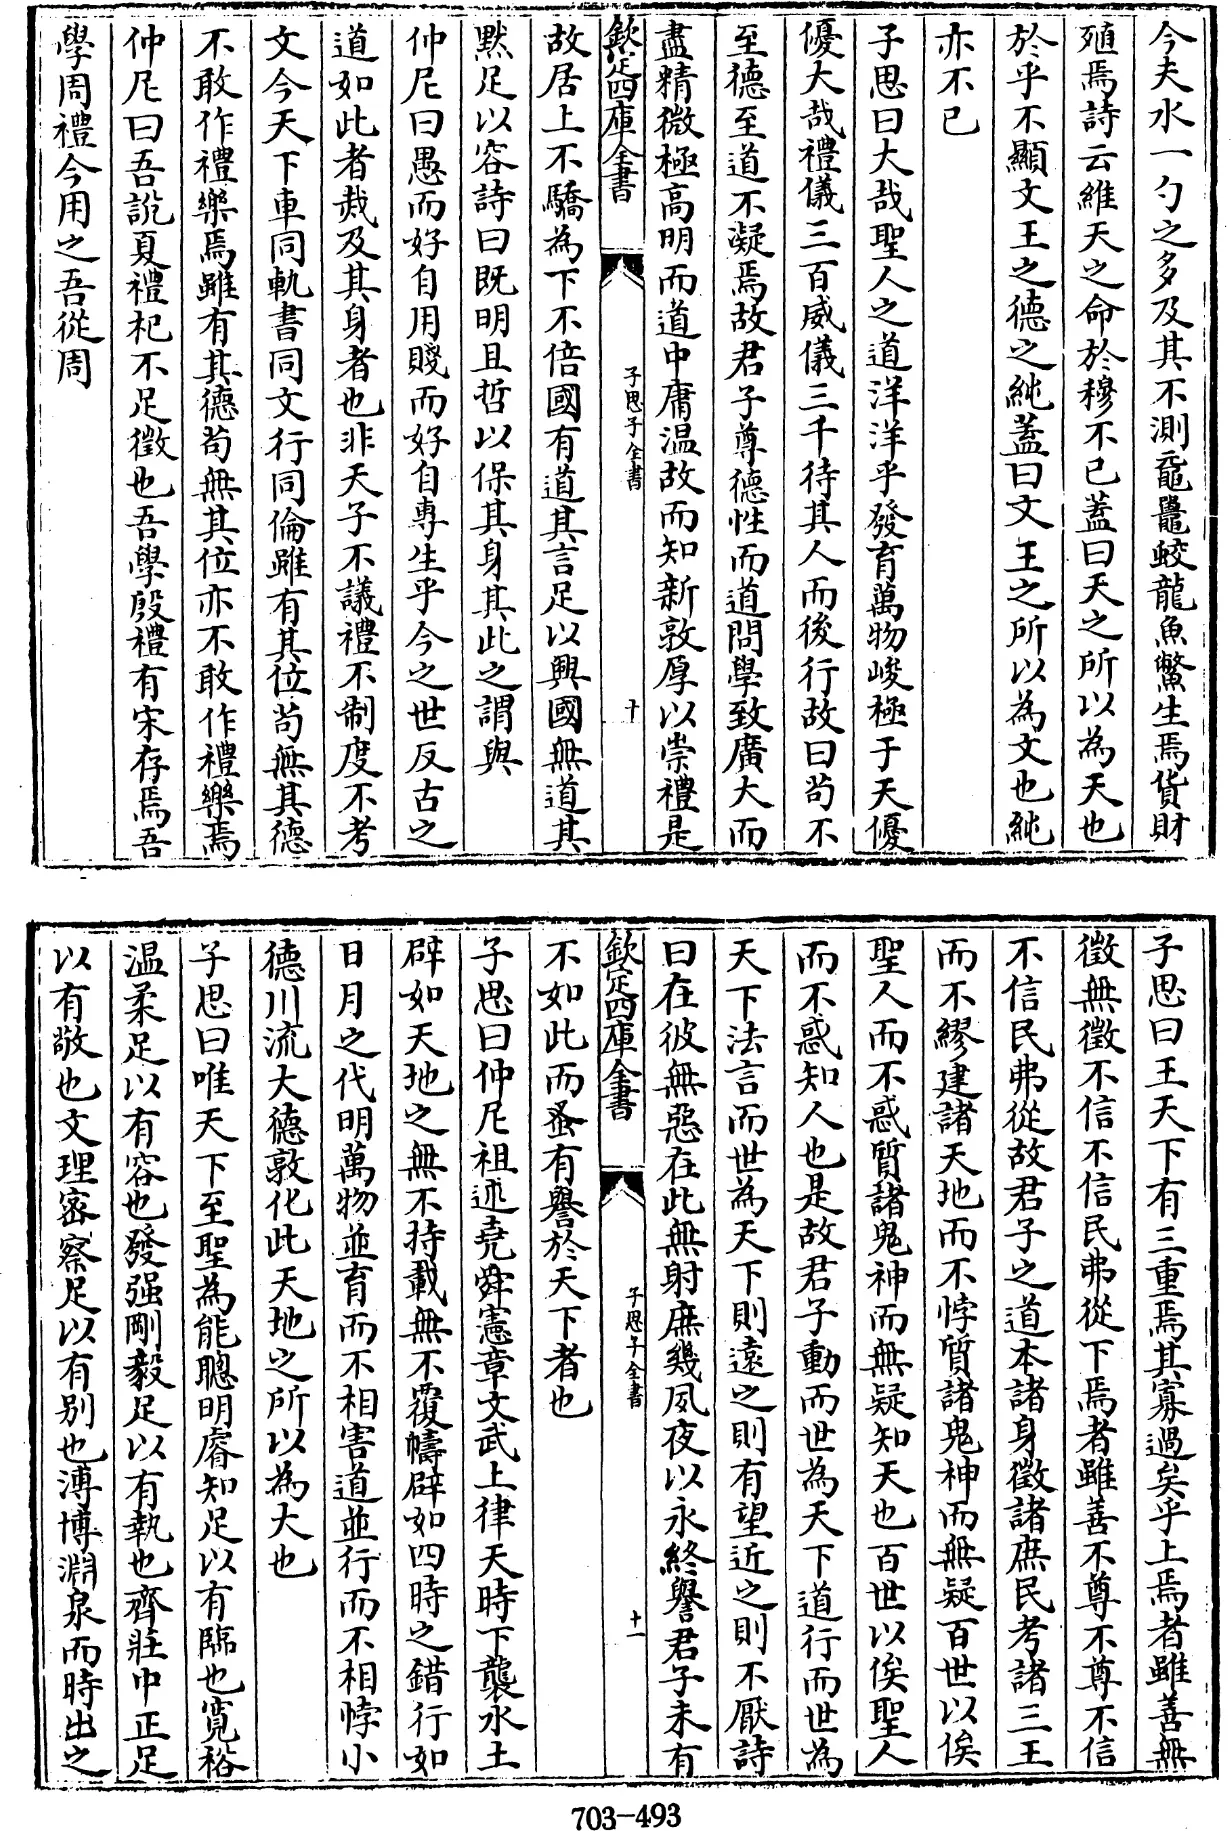 今夫水一勺之多及其不測黿鼉蛟龍魚鱉生焉貨財
殖焉詩云維天之命於穆不已蓋曰天之所以為天也
於乎不顯文王之德之純蓋曰文王之所以為文也純
亦不已
子思曰大哉聖人之道洋洋乎發育萬物峻極于天優
優大哉禮儀三百威儀三千待其人而後行故曰苟不
至德至道不凝焉故君子尊德性而道問學致廣大而
盡精微極高明而道中庸温故而知新敦厚以崇禮是
欽定四庫全書
子思子全書
十
故居上不驕為下不倍國有道其言足以興國無道其
默足以容詩曰既明且哲以保其身其此之謂與
仲尼曰愚而好自用賤而好自專生乎今之世反古之
道如此者烖及其身者也非天子不議禮不制度不考
文今天下車同軌書同文行同倫雖有其位苟無其德
不敢作禮樂焉雖有其德苟無其位亦不敢作禮樂焉
仲尼曰吾說夏禮杞不足徵也吾學殷禮有宋存焉吾
學周禮今用之吾從周
子思曰王天下有三重焉其寡過矣乎上焉者雖善無
徵無徵不信不信民弗從下焉者雖善不尊不尊不信
不信民弗從故君子之道本諸身徵諸庶民考諸三王
而不繆建諸天地而不悖質諸鬼神而無疑百世以俟
聖人而不惑質諸鬼神而無疑知天也百世以俟聖人
而不惑知人也是故君子動而世為天下道行而世為
天下法言而世為天下則遠之則有望近之則不厭詩
曰在彼無惡在此無射庶幾夙夜以永終譽君子未有
欽定四庫全書
子思子全書
十一
不如此而蚤有譽於天下者也
子思曰仲尼祖述堯舜憲章文武上律天時下襲水土
辟如天地之無不持載無不覆幬辟如四時之錯行如
日月之代明萬物並育而不相害道並行而不相悖小
德川流大德敦化此天地之所以為大也
子思曰唯天下至聖為能聰明睿知足以有臨也寛裕
温柔足以有容也發强剛毅足以有執也齊莊中正足
以有敬也文理密察足以有别也溥博淵泉而時出之
703-493